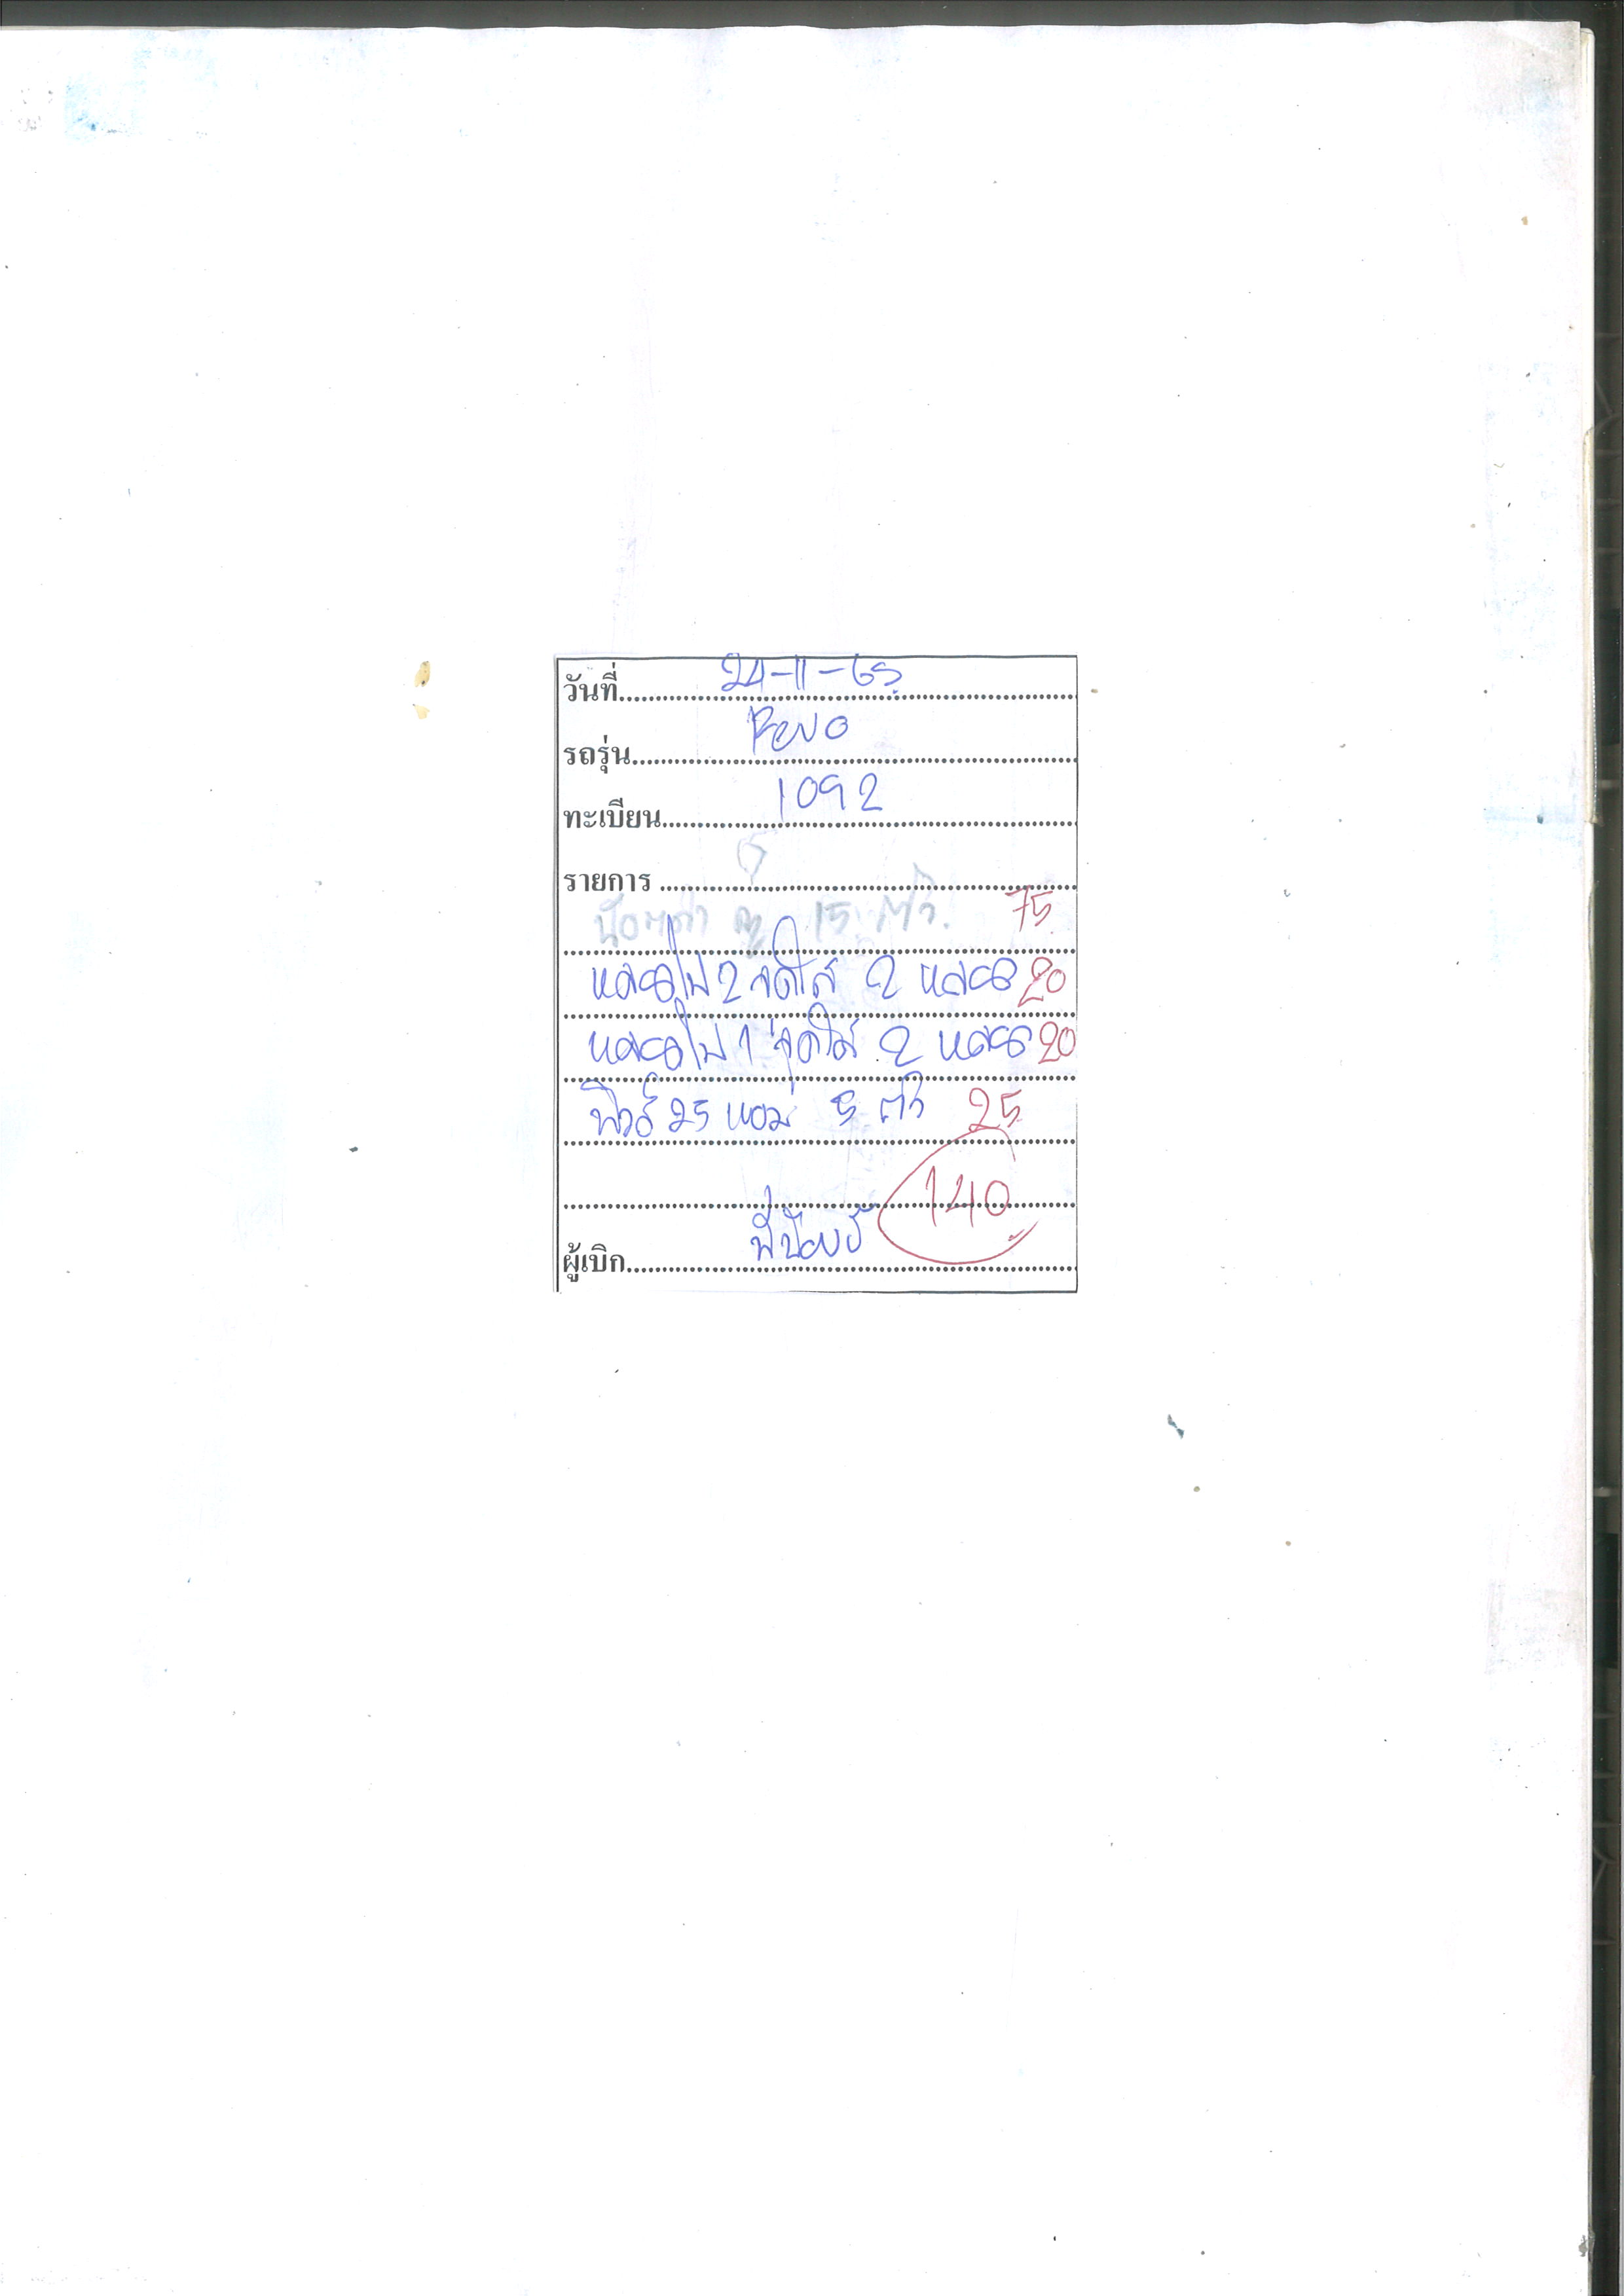 วันที่ 24-11-65
รถรุ่น Revo
ทะเบียน 1092
รายการ
15 ตัว 75
หลอดไฟ 2 จุดใส 2 หลอด 20
หลอดไฟ 1 จุดใส 2 หลอด 20
ฟิวส์ 25 แอม 5 ตัว 25
140
ผู้เบิก